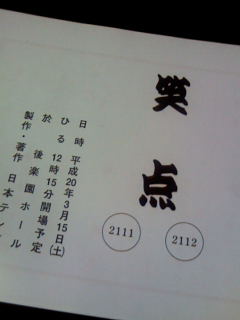 笑点
2112
2111
日時 平成20年3月15日(土)
ひる12時15分開場予定
於 後楽園ホール
製作・著作 日本テレ